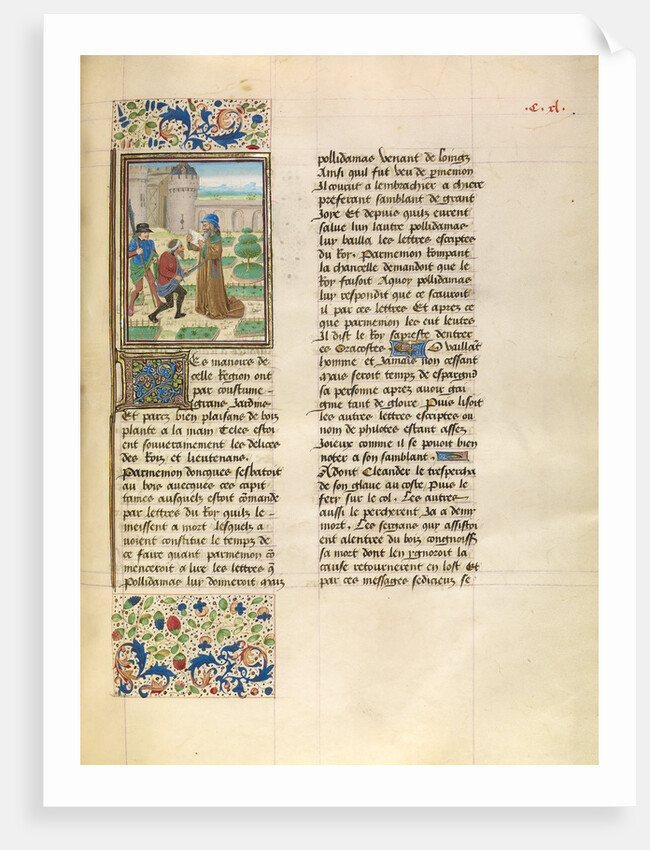 .C. xl.
Ces manoirs de
celle Region ont
par coustume
grans Jardins
Et parcz bien plaisans de bois
plante a la main Celes estoi
ent souverainement les delices
des Rois et lieutenans.
Parmenion doncques sesbatoit
au bois avecques ces capi
taines ausquelz estoit comade
par lettres du Roy quilz le
meissent a mort lesquelz a
voient constitue le temps de
ce faire quant parmenion co
menceroit a lire les lettres q
Pollidamas luy donneroit Mais
pollidamas venant de loingz
Ainsi quil fut veu de pmenion
Il courut a lembrachier a chiere
preferant samblant de grant
Joye Et depuis quilz eurent
salue lun lautre pollidamas
luy bailla les lettres escriptes
du Roy. Parmenion Rompant
la chancelle demandoit que le
Roy faisoit Aquoy pollidamas
luy respondit que ce scauroit
il par ces lettres Et apres ce
que parmenion les eut leutes
Il dist le Roy sapreste dentrer
es Oracostes O vaillat
homme et Jamais non cessant
Mais seroit temps de espargnr
sa personne aprez avoir gai
gnie tant de gloire Puis lisoit
les autres lettres escriptes ou
nom de philotes estant assez
Joieux comme il se povoit bien
noter a son samblant.
Adont Cleander le trespercha
de son glave au coste Puis le
fery sur le col. Les autres
aussi le percherent Ja a demy
mort. Les sergans quy assistoi
ent alentre du bois congnoiss
sa mort dont len ygnoroit la
cause retournerent en lost Et
par ces messages sedicieux se